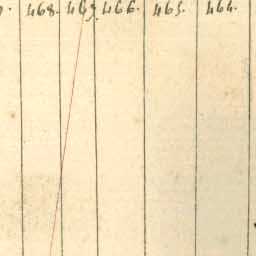 468. 467. 466. 465. 464.